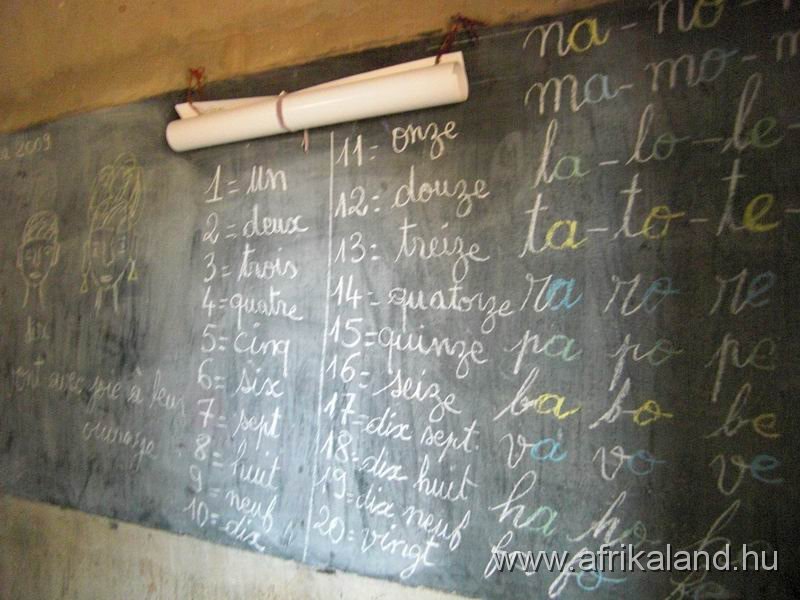 2009
1 = un
2 = deux
3 = trois
4 = quatre
5 = cinq
6 = six
7 = sept
8 = huit
9 = neuf
10 = dix
11 = onze
12 = douze
13 = treize
14 = quatorze
15 = quinze
16 = seize
17 = dix sept
18 = dix huit
19 = dix neuf
20 = vingt
na - no -
ma - mo - m
la - lo - le -
ta - to - te -
ra ro re
pa po pe
ba bo be
va vo ve
ha ho
à leur
ouvrage
www.afrikaland.hu